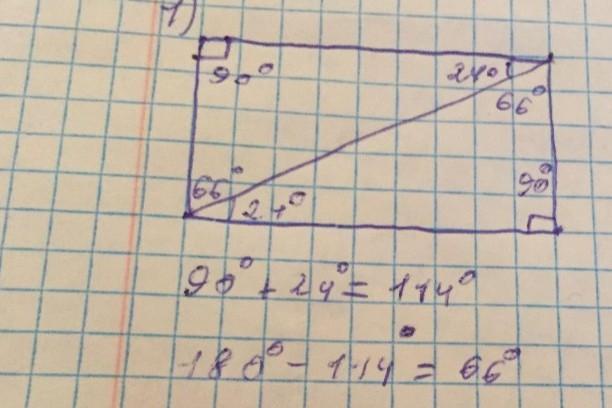 1)
90° 24°
66°
66° 90°
24°
90° + 24° = 114°
180° - 114° = 66°